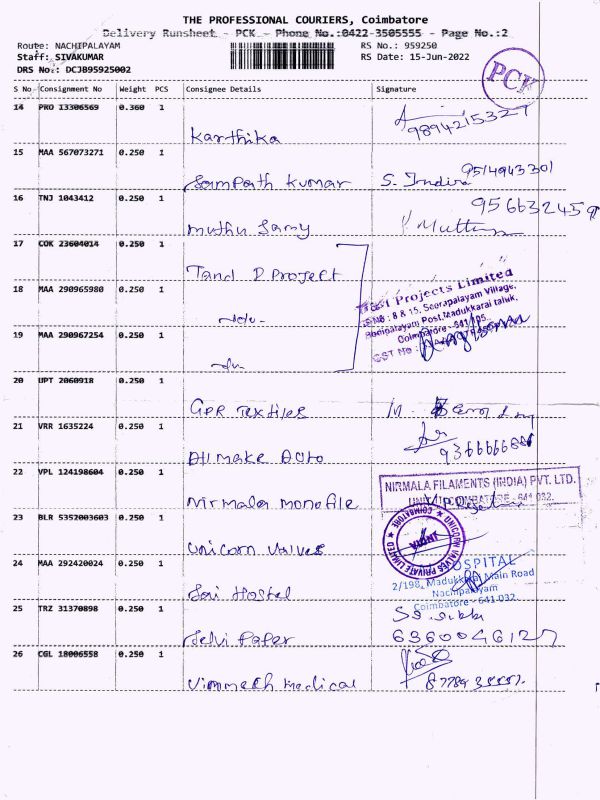 THE PROFESSIONAL COURIERS, Coimbatore
Delivery Runsheet - PCK - Phone No.:0422-3505555 - Page No.:2
Route: NACHIPALAYAM
RS No.: 959250
Staff: SIVAKUMAR
RS Date: 15-Jun-2022
DRS No.: DCJB95925002
PCK
S No Consignment No Weight PCS Consignee Details Signature
14 PRO 13306569 0.360 1
Karthika
9894215327
15 MAA 567073271 0.250 1
Sampath Kumar S. Indira 9514943301
16 TNJ 1043412 0.250 1
Muthu Samy
17 COK 23604014 0.250 1
T and D Project
18 MAA 290965980 0.250 1
Projects Limited
S.No : 8 & 15, Seerapalayam Village,
Post, Madukkarai taluk,
Coimbatore - 641 105.
GST No :
19 MAA 290967254 0.250 1
20 UPT 2060918 0.250 1
GPR Textiles
21 VRR 1635224 0.250 1
All make Auto
22 VPL 124198604 0.250 1
Nirmala monofile
NIRMALA FILAMENTS (INDIA) PVT. LTD.
COIMBATORE - 641 032.
23 BLR 5352003603 0.250 1
Unicorn Valves
UNICORN VALVES PRIVATE LIMITED
COIMBATORE
INDIA
24 MAA 292420024 0.250 1
Sai Hostel
HOSPITAL
2/198, Madukkarai Main Road
Nachipalayam
Coimbatore - 641 032
25 TRZ 31370898 0.250 1
Selvi Paper
6360046127
26 CGL 18006558 0.250 1
Vimmech medical